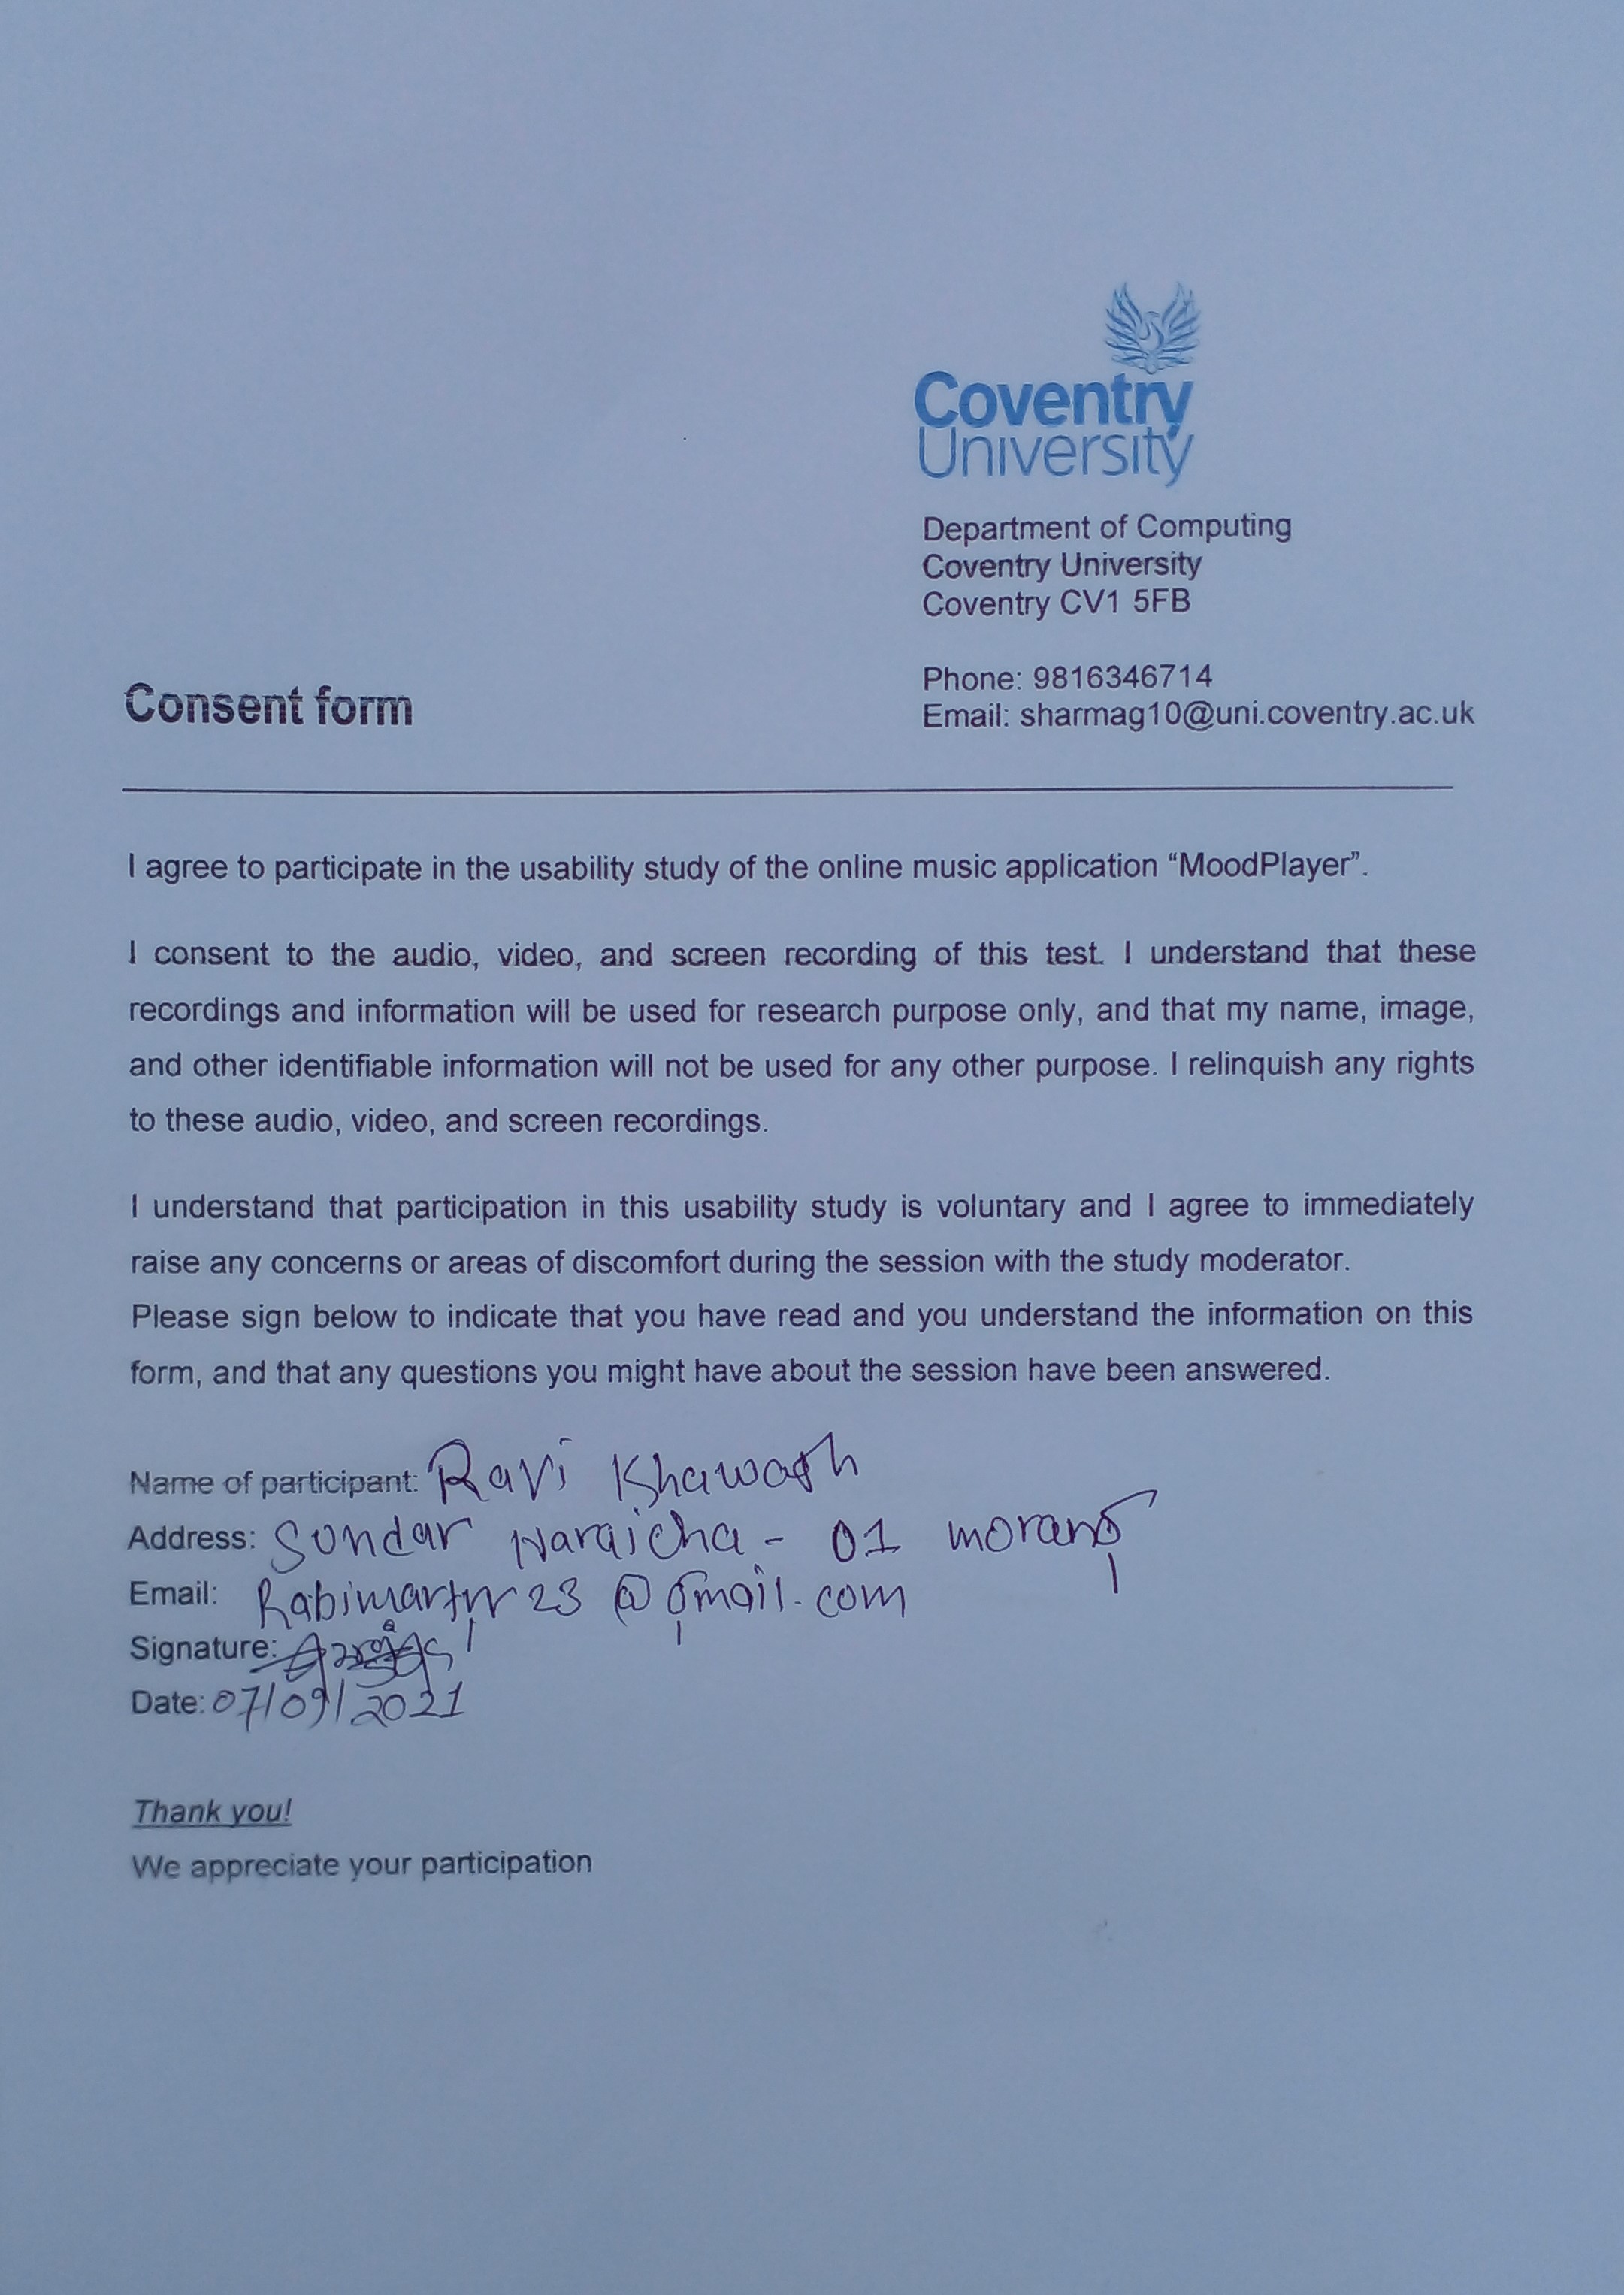 Coventry
University
Department of Computing
Coventry University
Coventry CV1 5FB
Phone: 9816346714
Email: sharmag10@uni.coventry.ac.uk
Consent form
I agree to participate in the usability study of the online music application “MoodPlayer”.
I consent to the audio, video, and screen recording of this test. I understand that these
recordings and information will be used for research purpose only, and that my name, image,
and other identifiable information will not be used for any other purpose. I relinquish any rights
to these audio, video, and screen recordings.
I understand that participation in this usability study is voluntary and I agree to immediately
raise any concerns or areas of discomfort during the session with the study moderator.
Please sign below to indicate that you have read and you understand the information on this
form, and that any questions you might have about the session have been answered.
Name of participant: Ravi
Address: Sundar Haraicha - 01 morang
Email: @gmail.com
Signature:
Date: 07/09/2021
Thank you!
We appreciate your participation